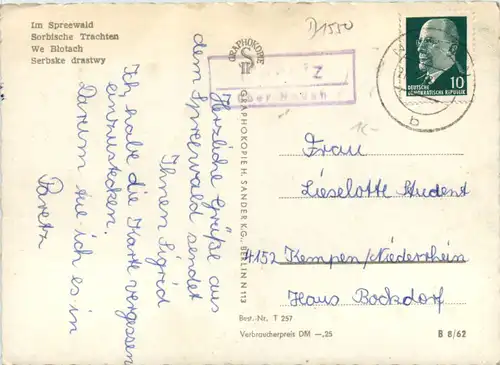 Im Spreewald
Sorbische Trachten
We Blotach
Serbske drastwy
Herzliche Grüße aus
dem Spreewald sendet
Ihnen Sigrid
Ich habe die Karte vergessen
einzustecken.
Darum tue ich es in
Paretz
GRAPHOKOPIE
GRAPHOKOPIE H. SANDER K.G., BERLIN N 113
Z
über
1550
10
DEUTSCHE
DEMOKRATISCHE REPUBLIK
b
Frau
Lieselotte Student
4152 Kempen/Niederrhein
Haus Bockdorf
Best.-Nr. T 257
Verbraucherpreis DM —,25
B 8/62